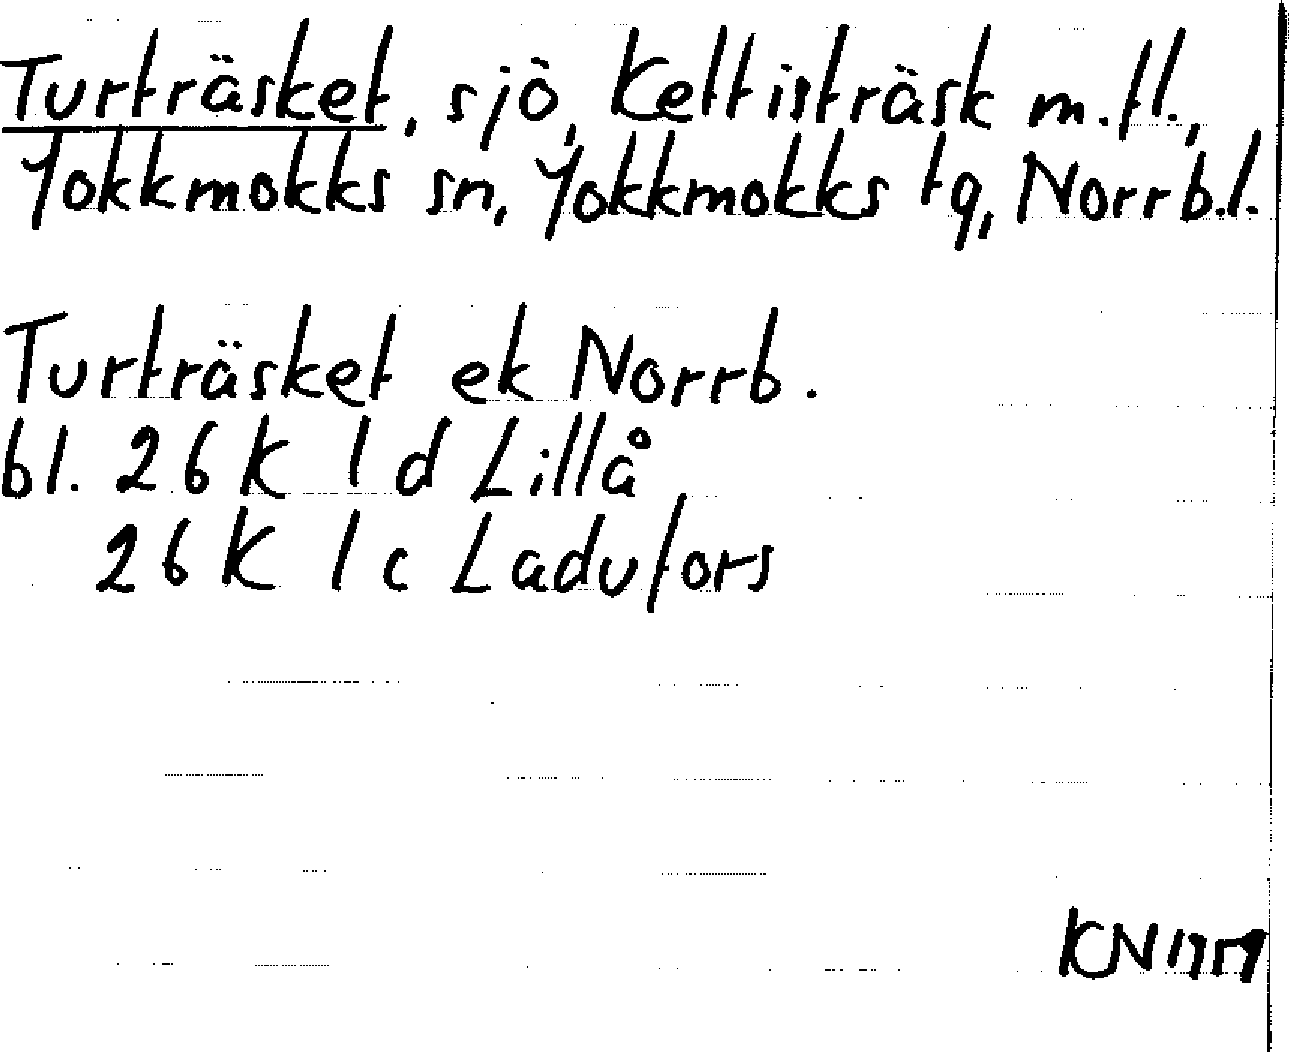 Turträsket, sjö, Kettisträsk m.fl.,
Jokkmokks sn, Jokkmokks tg, Norrb.l.
Turträsket ek Norrb.
bl. 26 K 1 d Lillå
26 K 1 c Ladufors